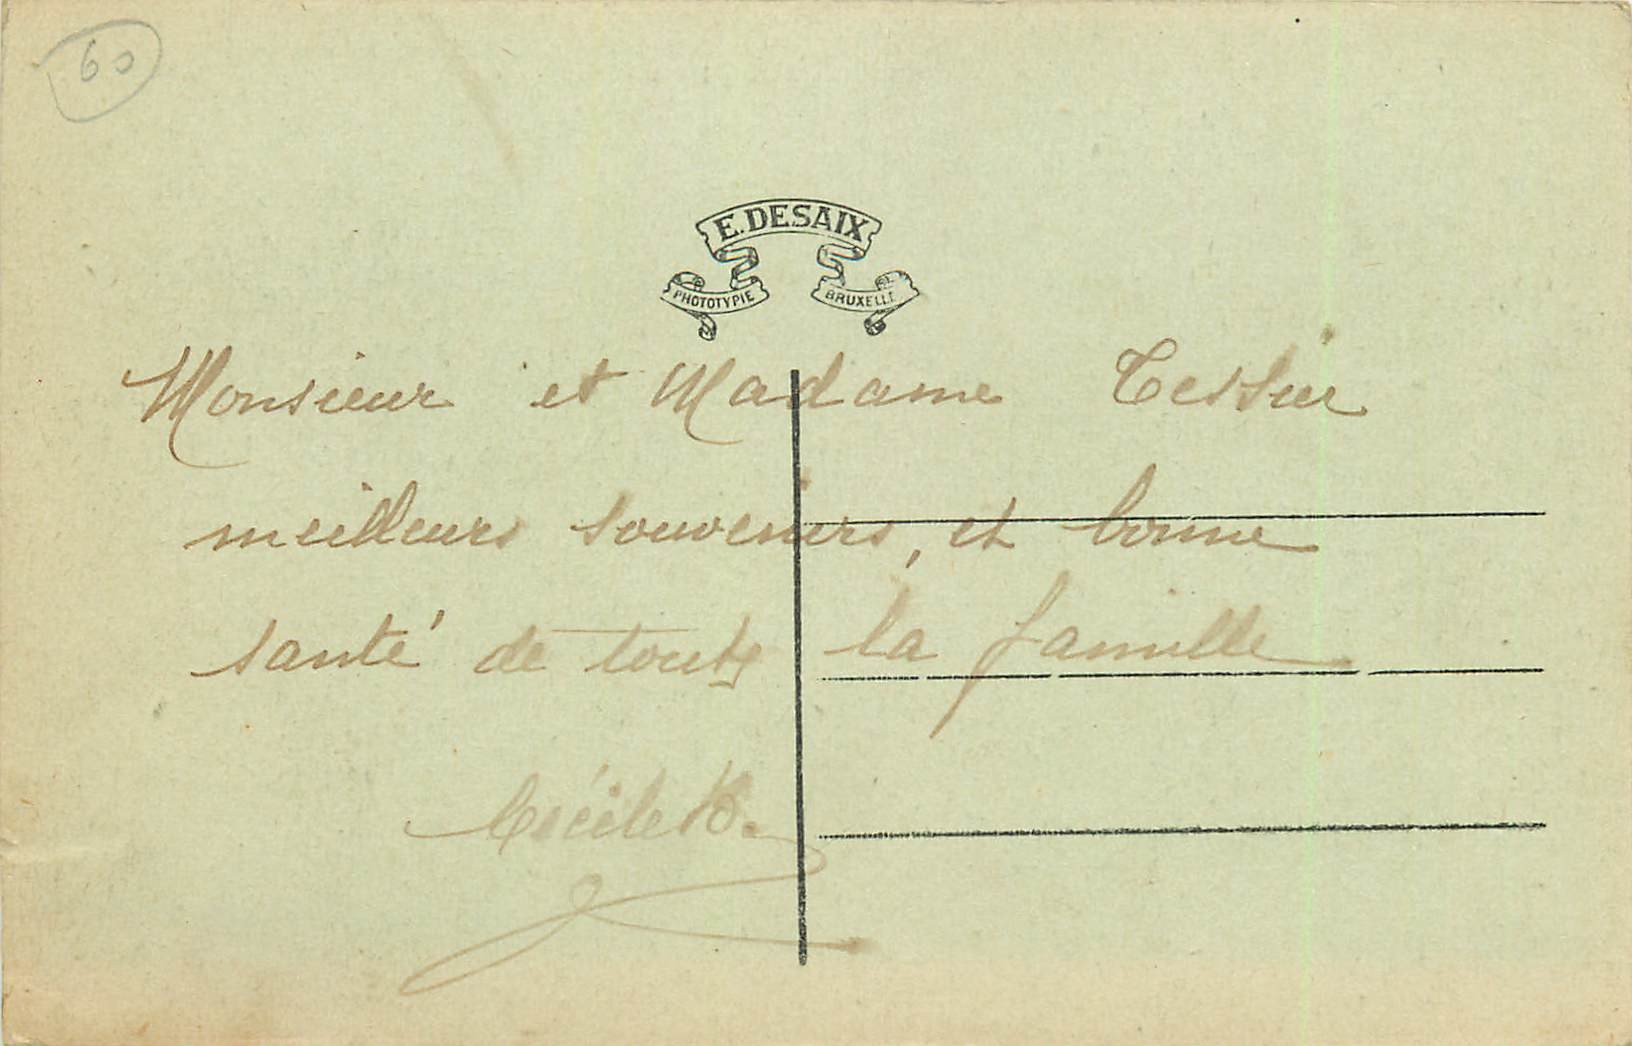 60
E. DESAIX
PHOTOTYPIE BRUXELLE
Monsieur et Madame Tessier
meilleurs souvenirs, et bonne
santé de toute la famille
Cécile